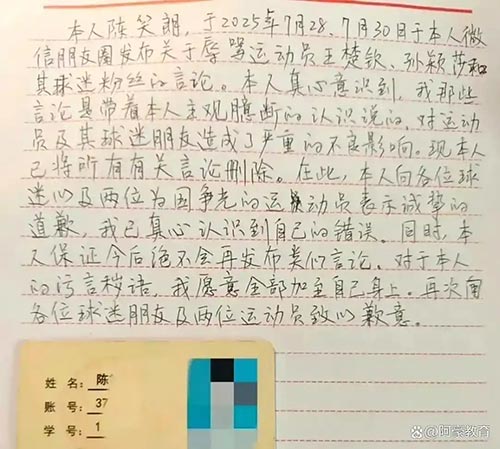 本人陈笑朗，于2025年7月28、7月30日于本人微
信朋友圈发布关于辱骂运动员王楚钦、孙颖莎和
其球迷粉丝的言论。本人真心意识到，我那些
言论是带着本人主观臆断的认识说的，对运动
员及其球迷朋友造成了严重的不良影响。现本人
已将所有有关言论删除。在此，本人向各位球
迷以及两位为国争光的运动员表示诚挚的
道歉，我已真心认识到自己的错误。同时，本
人保证今后绝不会再发布类似言论，对于本人
的污言秽语，我愿意全部加至自己身上。再次向
各位球迷朋友及两位运动员致以歉意。
姓 名：陈
账 号：37
学 号：1
@阿荣教育